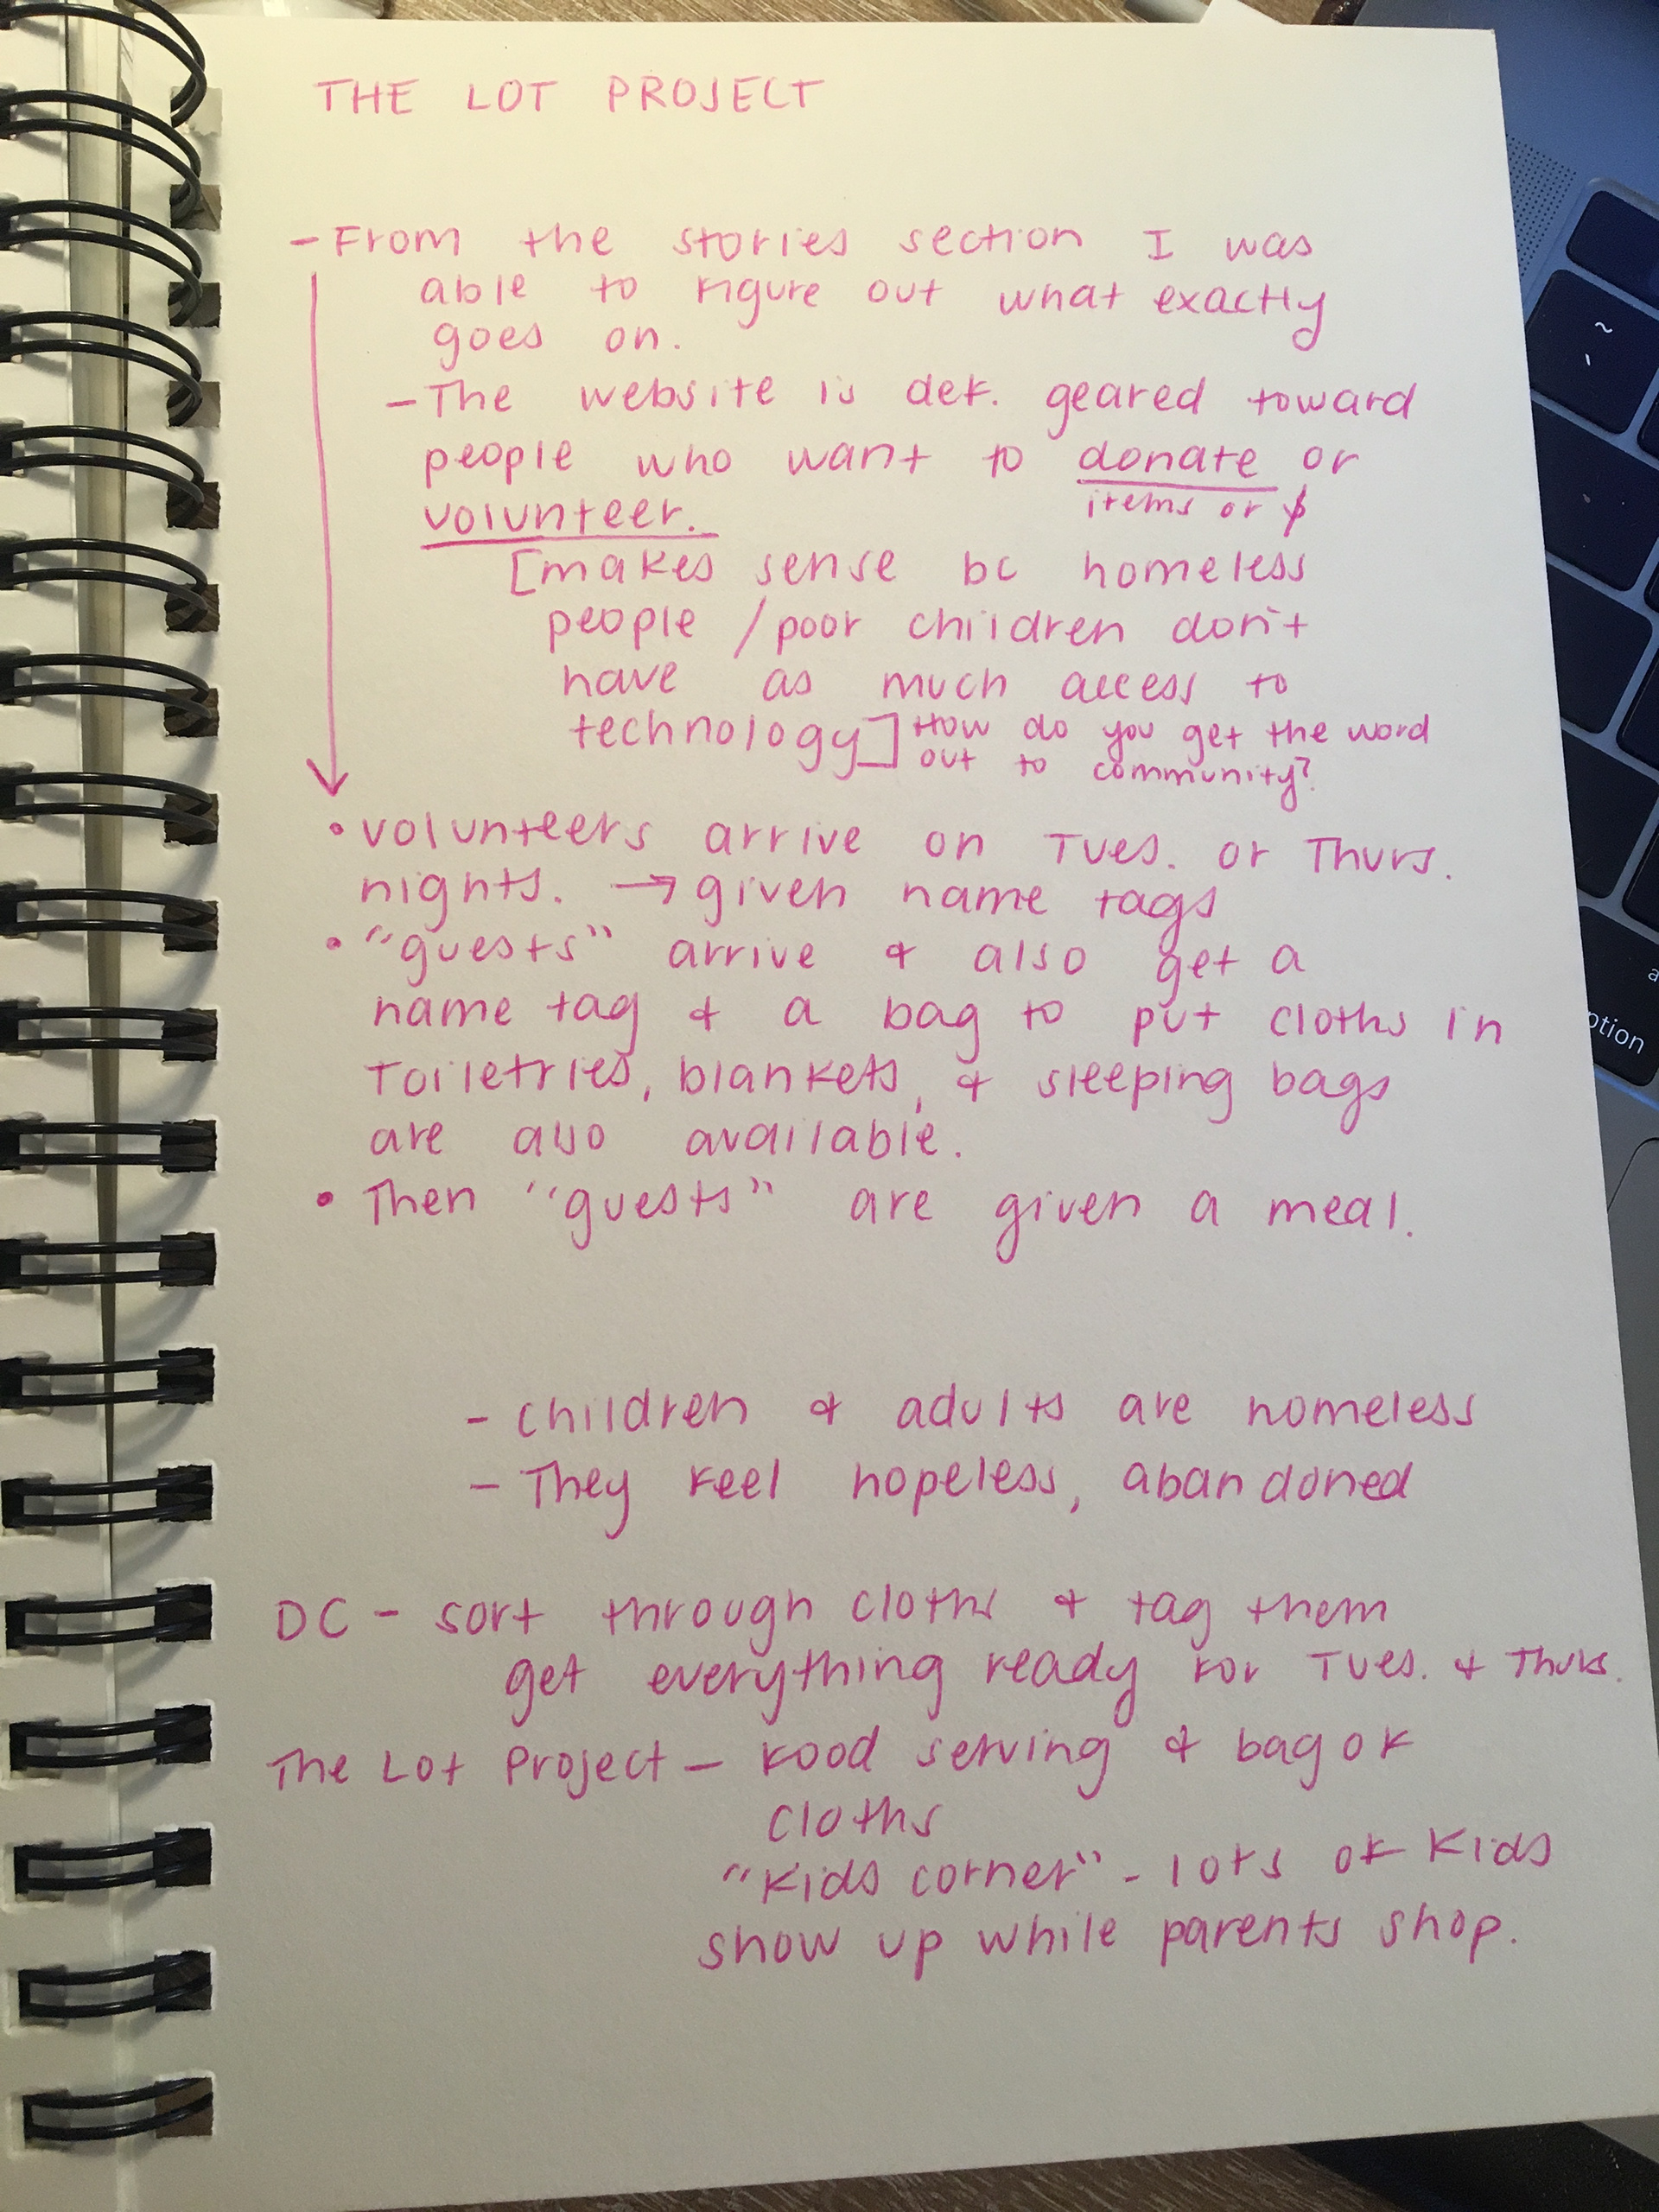 THE LOT PROJECT
- From the stories section I was
able to figure out what exactly
goes on.
- The website is def. geared toward
people who want to donate or
items or $
volunteer.
[makes sense bc homeless
people / poor children don't
have as much access to
technology] How do you get the word
out to community?
• volunteers arrive on Tues. or Thurs.
nights. → given name tags
• "guests" arrive & also get a
name tag & a bag to put cloths in
Toiletries, blankets, & sleeping bags
are also available.
• Then "guests" are given a meal.
- children & adults are homeless
- They feel hopeless, abandoned
DC - sort through cloths & tag them
get everything ready for Tues. & Thurs.
The Lot Project - food serving & bag of
cloths
"Kids corner" - lots of kids
show up while parents shop.
~
`
a
option